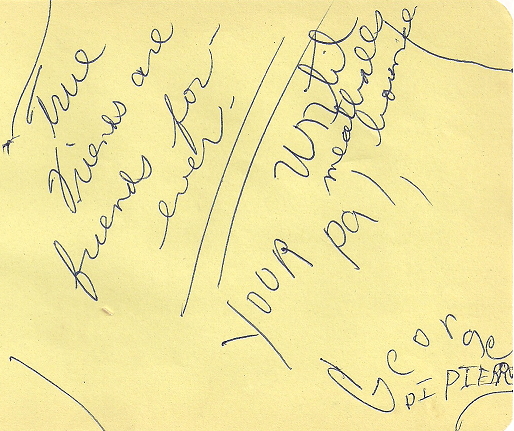 True
Friends are
friends for-
ever.
Until
meatballs
bounce
YOUR pal,
George
DI PIERR